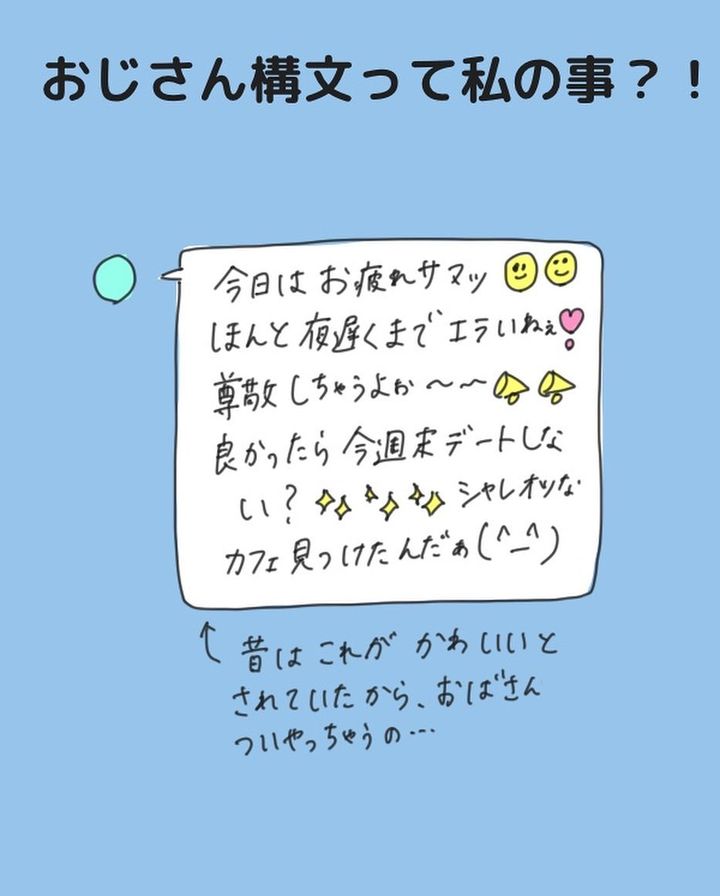 おじさん構文って私の事？！
今日はお疲れサマッ
ほんと夜遅くまでエラいねぇ
尊敬しちゃうよぉ〜〜
良かったら今週末デートしな
い？シャレオツな
カフェ見つけたんだぁ(^_^)
昔はこれがかわいいと
されていたから、おばさん
ついやっちゃうの…